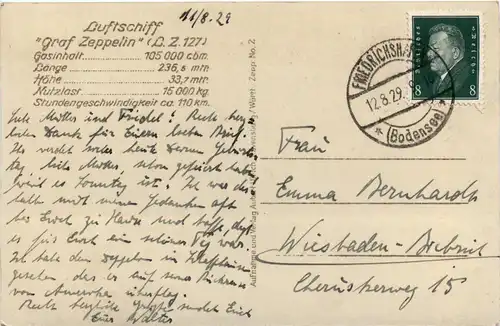 11/8.29
Luftschiff
"Graf Zeppelin" (L.Z.127)
Gasinhalt 105000 cbm.
Länge 236,6 mtr.
Höhe 33,7 mtr.
Nutzlast 15000 kg.
Stundengeschwindigkeit ca 110 km.
Gute Mutter und Friedel! Recht herz-
lichen Dank für Euern lieben Brief.
Ihr werdet sicher heute Deinen Geburts-
tag, liebe Mutter, schon gefeiert haben
weil es Sonntag ist. Ich war des-
halb mit meinen Gedanken oft
bei Euch zu Hause und hoffe, daß
es für Euch ein schöner Tag war.
Ich habe den Zeppelin in
gesehen, als er auf seiner
von Amerika überflog.
Recht herzliche Grüße sendet Euch
Euer Walter
Deutsches Reich
8 8
FRIEDRICHSHAFEN
12.8.29.
* (Bodensee) *
Frau
Emma Bernhardt
Wiesbaden-Biebrich
Cheruskerweg 15